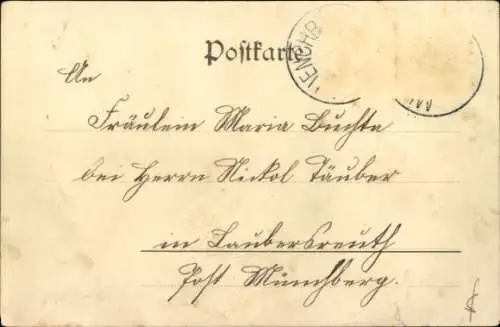 Postkarte
An
Fräulein Maria Buchta
bei Herrn Nickol Täuber
in Laubersreuth
Post Münchberg.